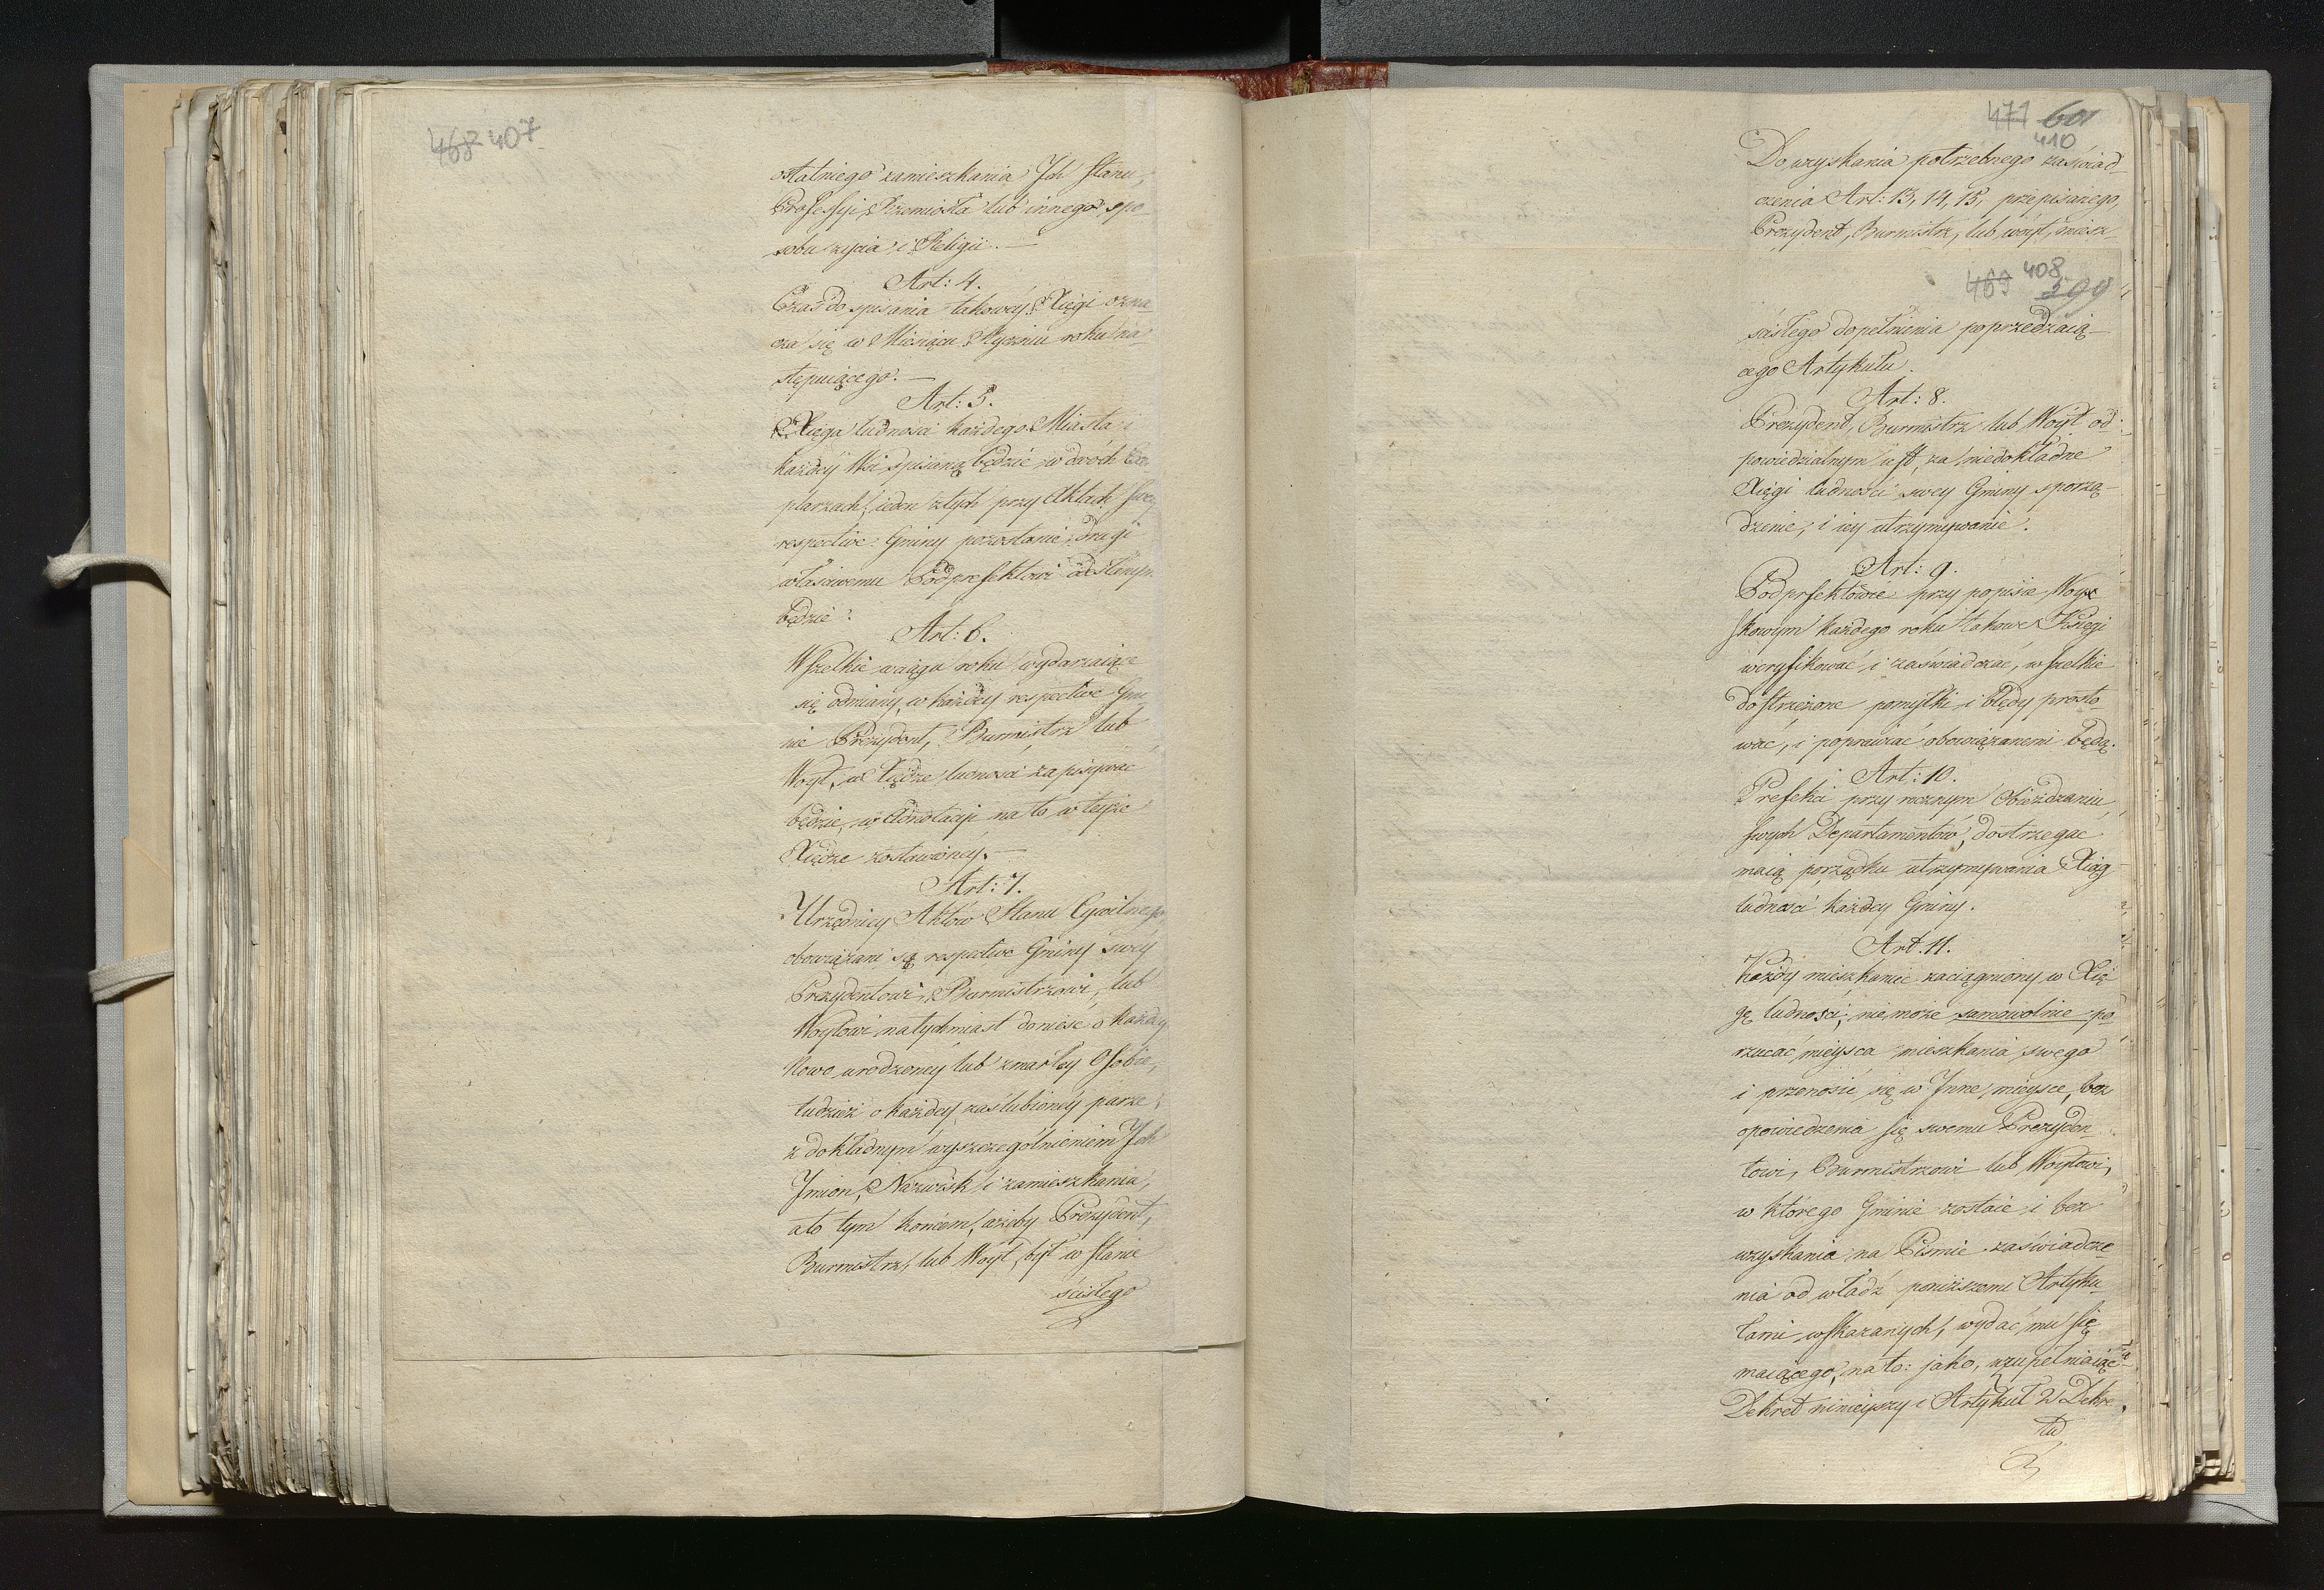 468 407
ostatniego zamieszkania Ich Stanu,
Professyi, Rzemiosła lub innego spo-
sobu zycia i Religii. —
Art: 4.
Czas do spisania takowey Xięgi ozna
cza się w Miesiącu Styczniu roku na-
stępuiącego. —
Art: 5.
Xięga ludności każdego Miasta i
każdey Wsi spisaną będzie w dwóch Ex
plarzach, ieden z tych przy Aktach swey
respective Gminy pozostanie, drugi
właściwemu Podprefektowi odesłanym
będzie.
Art: 6.
Wszelkie w ciągu roku wydarzaiące
się odmiany, w każdey respective Gmi
nie Prezydent, Burmistrz lub
Woyt, w Xiędze ludności zapisywać
będzie, w Adnotacyi na to w teyże
Xiędze zostawioney. —
Art: 7.
Urzędnicy Aktów Stanu Cywilnego
obowiązani są respective Gminy swey
Prezydentowi, Burmistrzowi, lub
Woytowi natychmiast donieść o każdey
Nowo urodzoney lub zmarłey Osobie,
tudzież o każdey zaślubioney parze,
z dokładnym wyszczególnieniem Ich
Imion, Nazwisk i zamieszkania,
a to tym końcem, ażeby Prezydent,
Burmistrz, lub Woyt, był w stanie
ścisłego
471 601
410
Do uzyskania potrzebnego zaświad-
czenia Art: 13, 14, 15, przepisanego,
Prezydent, Burmistrz, lub woyt, miesz-
469 408
599
ścisłego dopełnienia poprzedzaią-
cego Artykułu.
Art: 8.
Prezydent, Burmistrz lub Woyt od-
powiedzialnym iest, za niedokładne
Xięgi ludności swey Gminy sporzą-
dzenie, i iey utrzymywanie.
Art: 9.
Podprfektowie przy popisie Woy-
skowym każdego roku takowe Księgi
weryfikować i zaświadczać, wszelkie
dostrzeżone pomyłki i błędy prosto-
wać, i poprawiać obowiązanemi będą.
Art: 10.
Prefekci przy rocznym Obieżdzaniu
swych Departamentów, dostrzegać
maią porządku utrzymywania Xiąg
ludności każdey Gminy.
Art. 11.
Każdy mieszkaniec zaciągniony w Xię-
gę ludności, nie może samowolnie po-
rzucać mieysca mieszkania swego
i przenosić się w Inne mieysce, bez
opowiedzenia się swemu Prezyden-
towi, Burmistrzowi lub Woytowi,
w którego Gminie zostaie i bez
uzyskania na Piśmie zaświadcze-
nia od władz poniższemi Artyku-
łami wskazanych, wydać mu się
maiącego, na to: jako, uzupełniaiąc
Dekret ninieyszy i Artykuł 2 Dekre-
tu